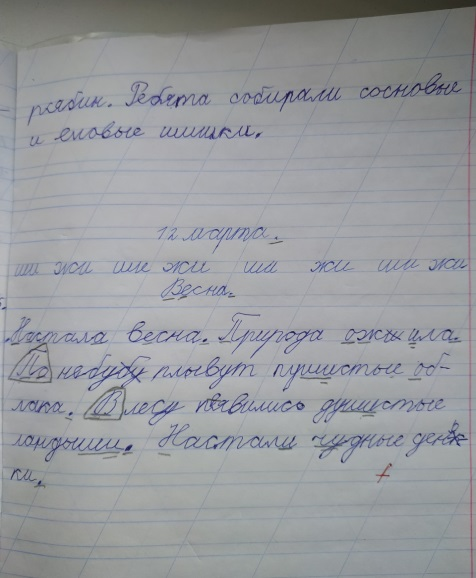 рябин. Ребята собирали сосновые
и еловые шишки.
12 марта.
ши жи ши жи ши жи ши жи
Весна.
Настала весна. Природа ожила.
По небу плывут пушистые об-
лака. В лесу появились душистые
ландыши. Настали чудные день-
ки.